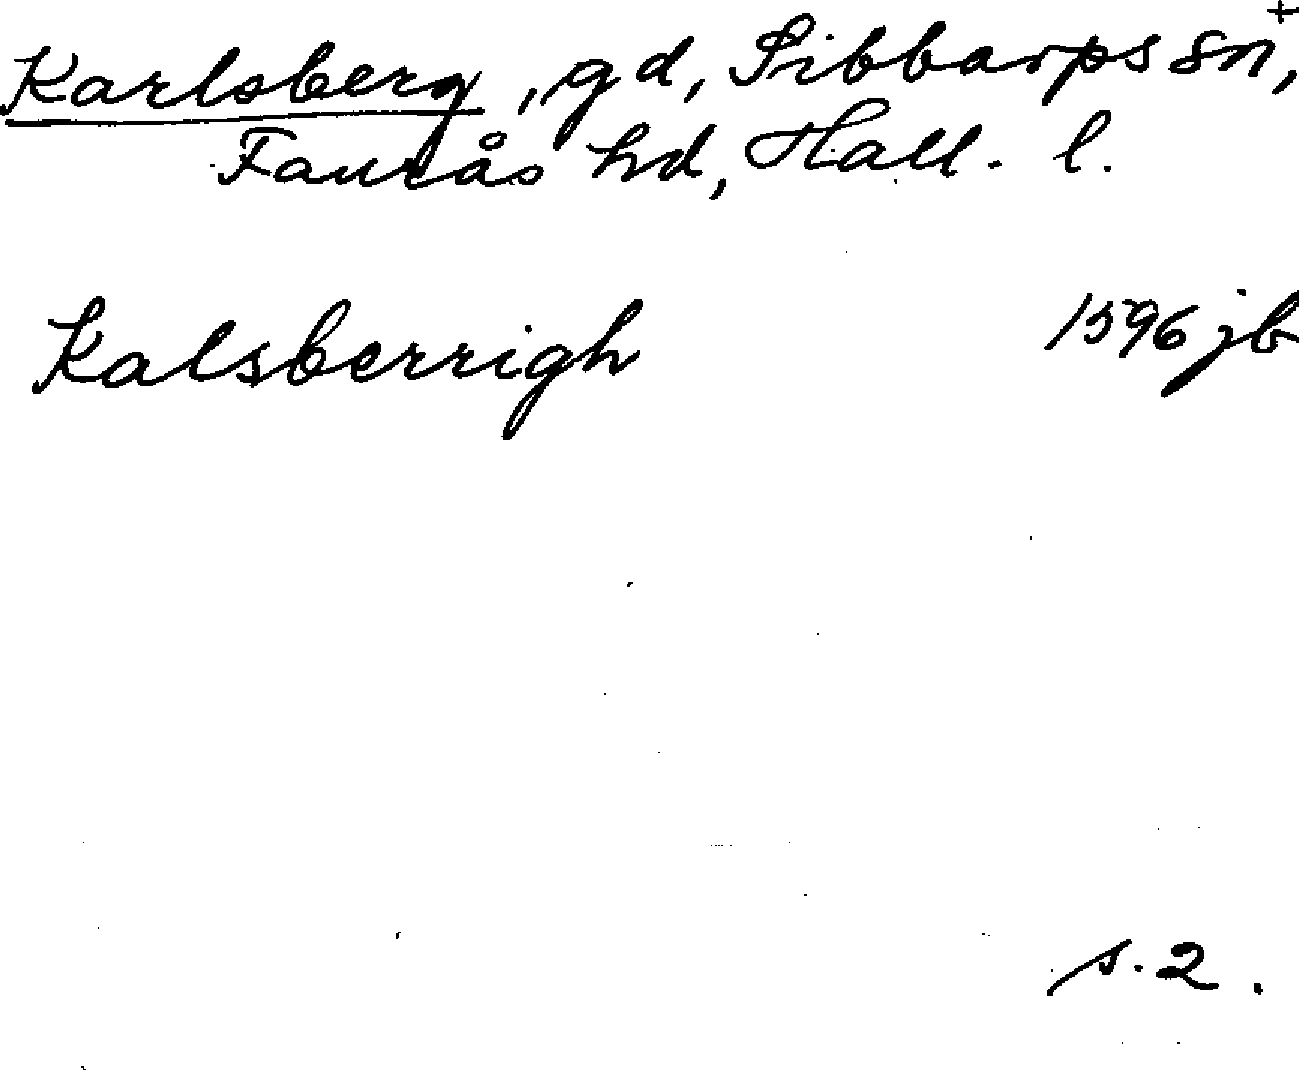 Karlsberg, gd, Sibbarps sn,+
Faurås hd, Hall. l.
Kalsberrigh 1596 jb
s. 2.